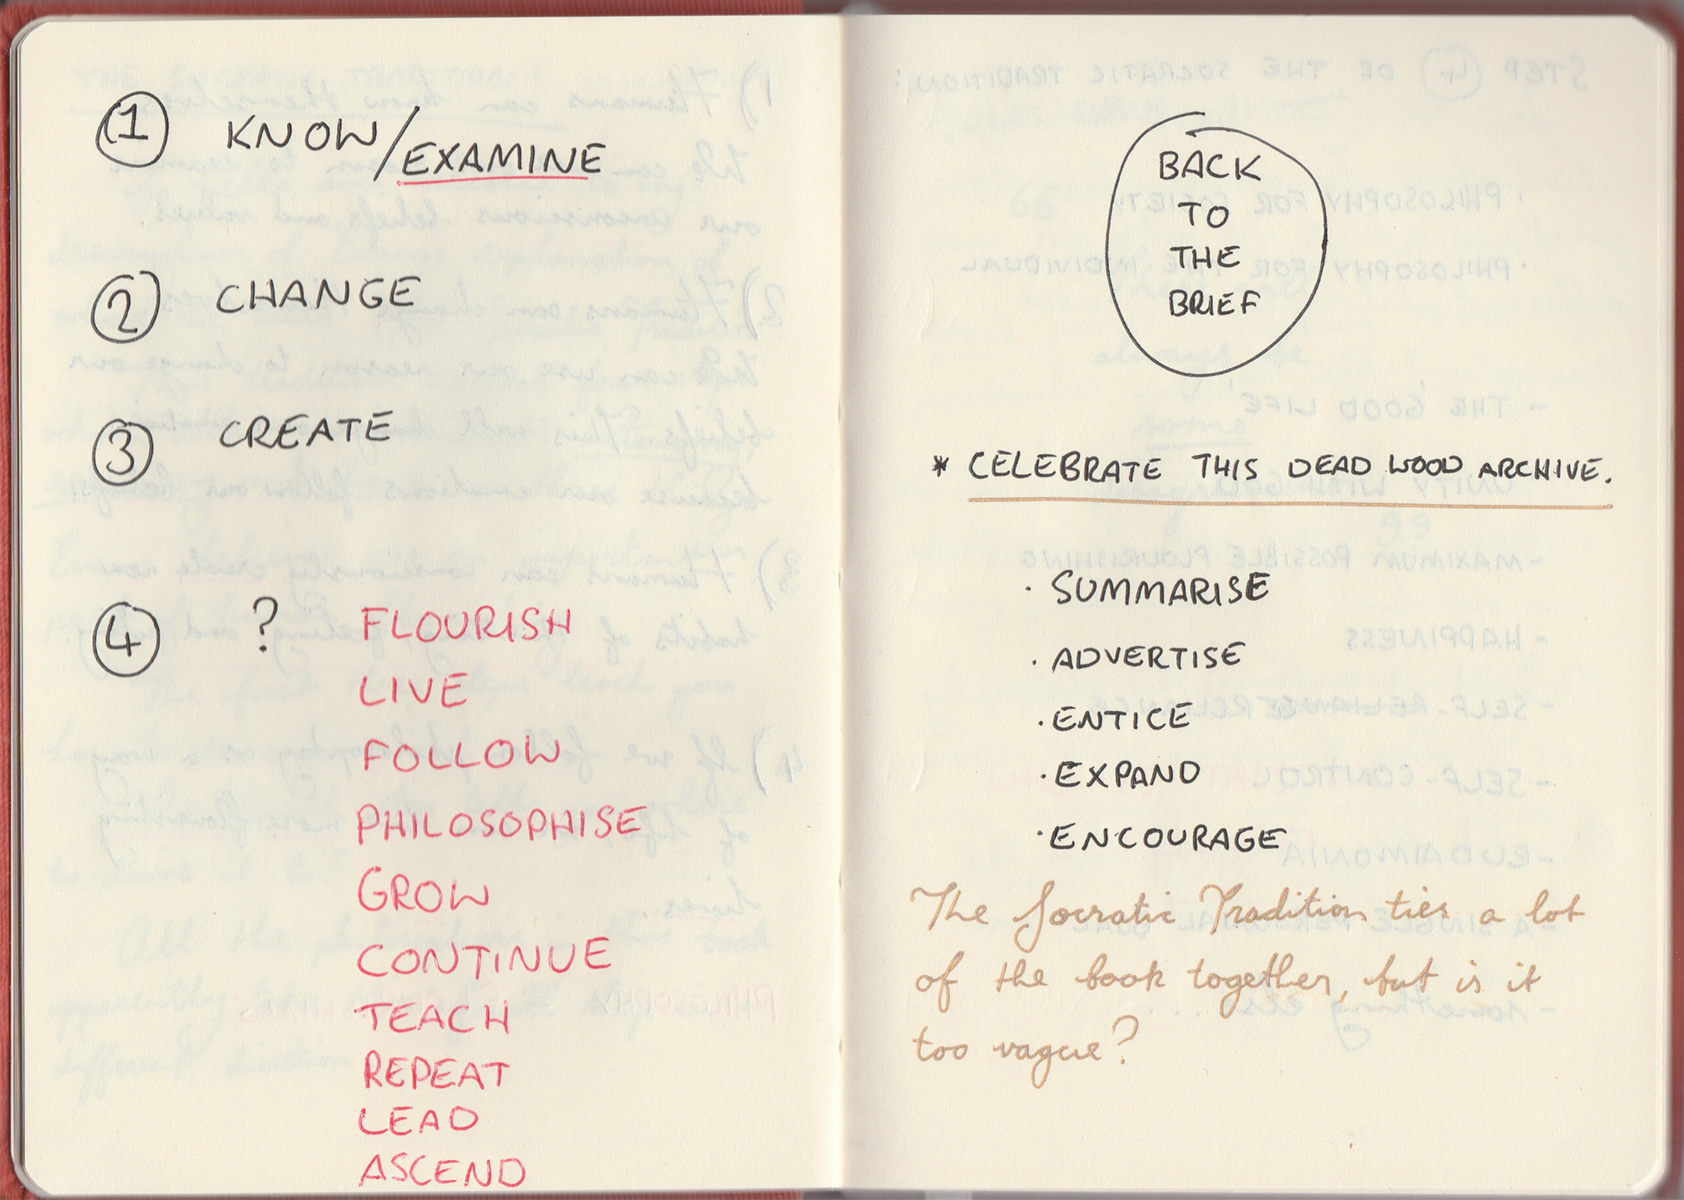 1 KNOW/EXAMINE
2 CHANGE
3 CREATE
4 ? FLOURISH
LIVE
FOLLOW
PHILOSOPHISE
GROW
CONTINUE
TEACH
REPEAT
LEAD
ASCEND
BACK
TO
THE
BRIEF
* CELEBRATE THIS DEAD WOOD ARCHIVE.
· SUMMARISE
· ADVERTISE
· ENTICE
· EXPAND
· ENCOURAGE
The Socratic Tradition ties a lot
of the book together, but is it
too vague?